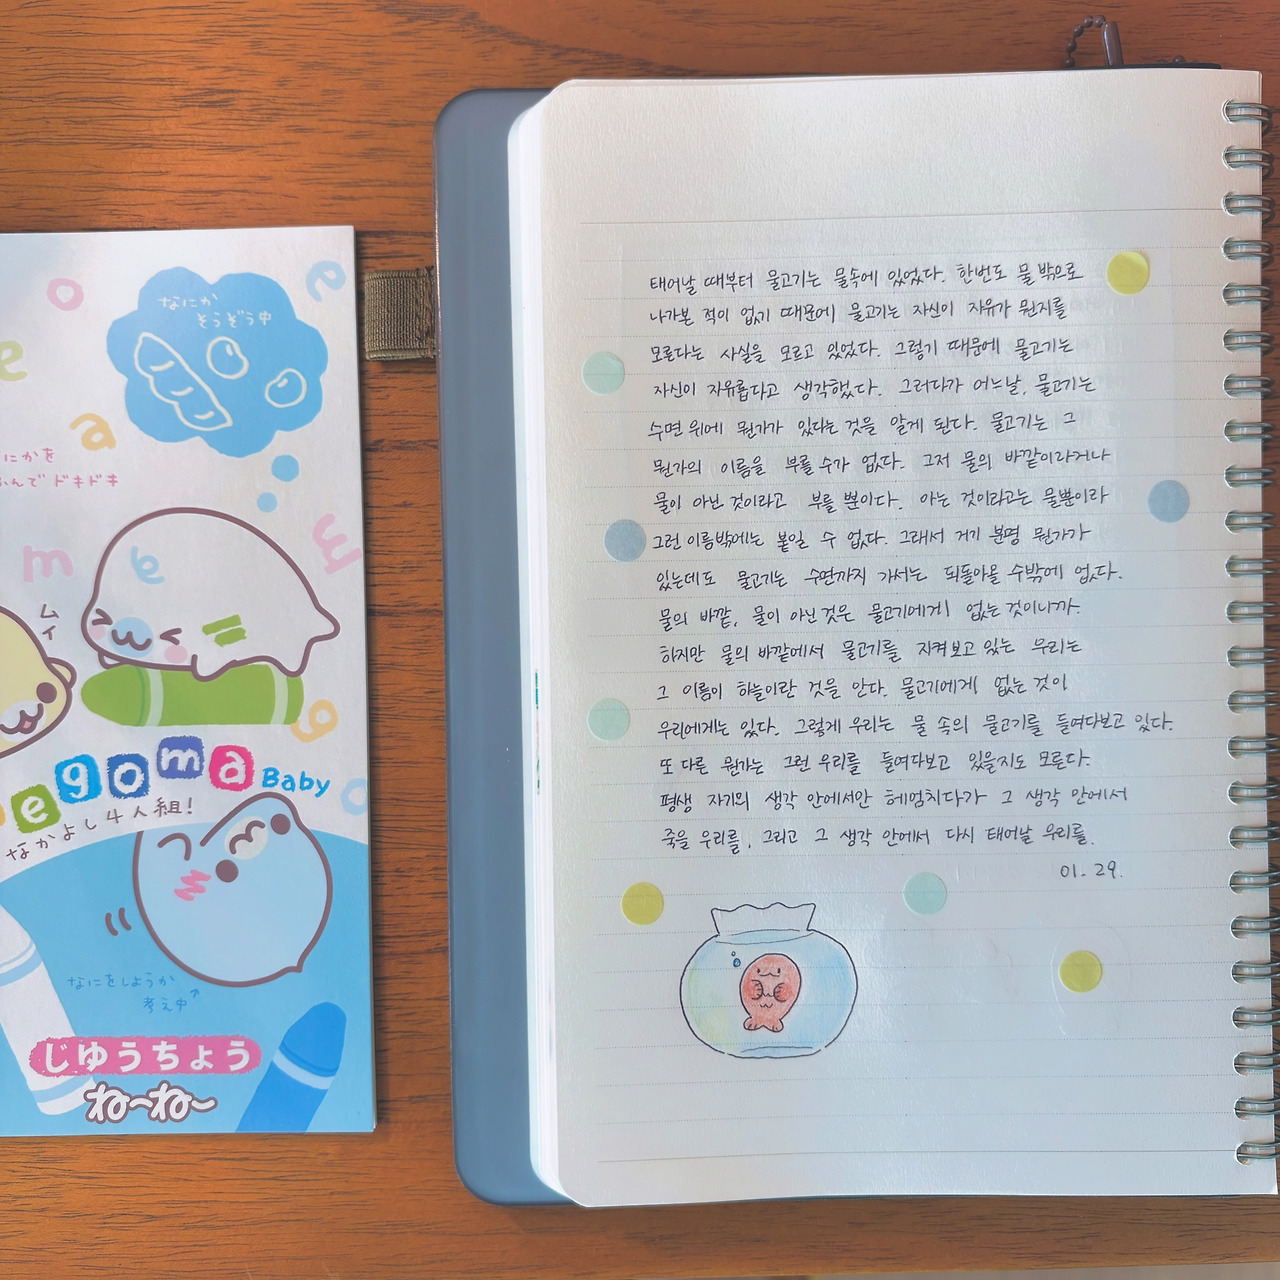 なにか
そうぞう中
にかを
んで ドキドキ
ムイ
egoma Baby
なかよし4人組!
なにをしようか
考え中
じゆうちょう
ね〜ね〜
태어날 때부터 물고기는 물속에 있었다. 한번도 물 밖으로
나가본 적이 없기 때문에 물고기는 자신이 자유가 뭔지를
모른다는 사실을 모르고 있었다. 그렇기 때문에 물고기는
자신이 자유롭다고 생각했다. 그러다가 어느날, 물고기는
수면 위에 뭔가가 있다는 것을 알게 된다. 물고기는 그
뭔가의 이름을 부를 수가 없다. 그저 물의 바깥이라거나
물이 아닌 것이라고 부를 뿐이다. 아는 것이라고는 물뿐이라
그런 이름밖에는 붙일 수 없다. 그래서 거기 분명 뭔가가
있는데도 물고기는 수면까지 가서는 되돌아올 수밖에 없다.
물의 바깥, 물이 아닌 것은 물고기에게 없는 것이니까.
하지만 물의 바깥에서 물고기를 지켜보고 있는 우리는
그 이름이 하늘이란 것을 안다. 물고기에게 없는 것이
우리에게는 있다. 그렇게 우리는 물 속의 물고기를 들여다보고 있다.
또 다른 뭔가는 그런 우리를 들여다보고 있을지도 모른다.
평생 자기의 생각 안에서만 헤엄치다가 그 생각 안에서
죽을 우리를, 그리고 그 생각 안에서 다시 태어날 우리를.
01. 29.